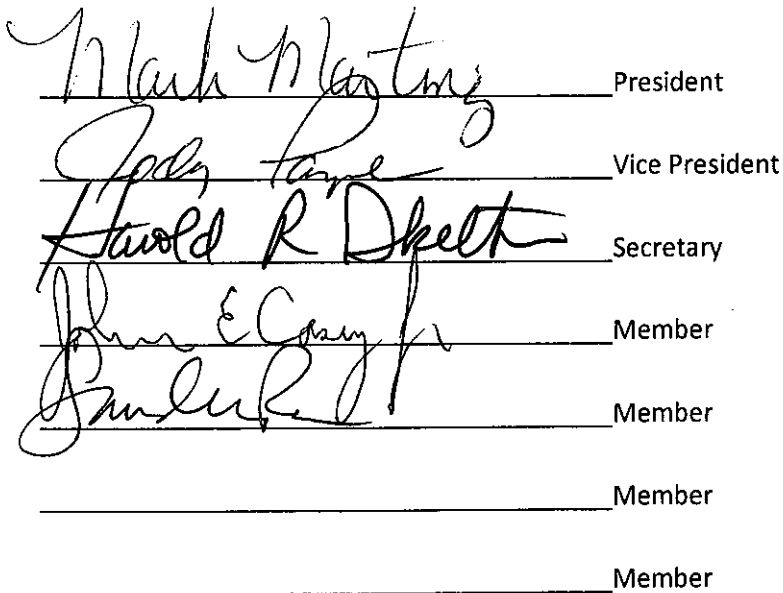 Mark President
Jody Payne Vice President
Harold R Skelton Secretary
John E Casey Jr Member
Member
Member
Member